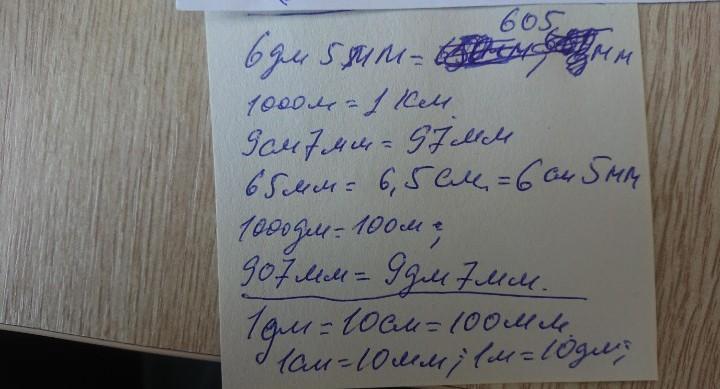 605
6дм 5мм = мм
1000м = 1 км.
9см 7мм = 97мм
65мм = 6,5 см, = 6 см 5мм
1000дм = 100м;
907мм = 9дм 7мм.
1дм = 10см = 100мм
1см = 10мм; 1м = 10дм;